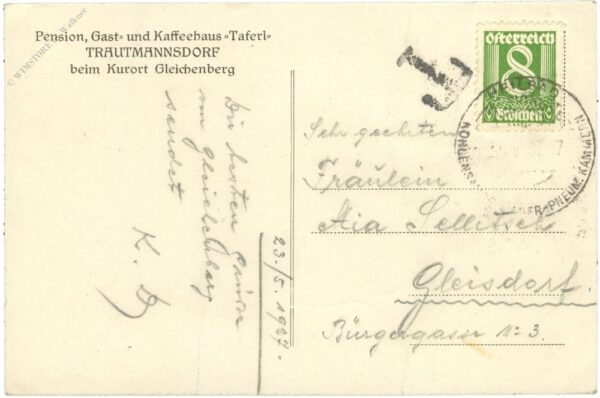 © WIMSTORE Walkner
Pension, Gast- und Kaffeehaus »Taferl«
TRAUTMANNSDORF
beim Kurort Gleichenberg
Die besten Grüsse
von Gleichenberg
sendet
K. D
23./5. 1927.
T
Österreich
8
Groschen
KOHLENS
ER-PNEUM. KAMMERN
Sehr geehrten
Fräulein
Mia Sellitsch
Gleisdorf.
Bürgergasse No 3.